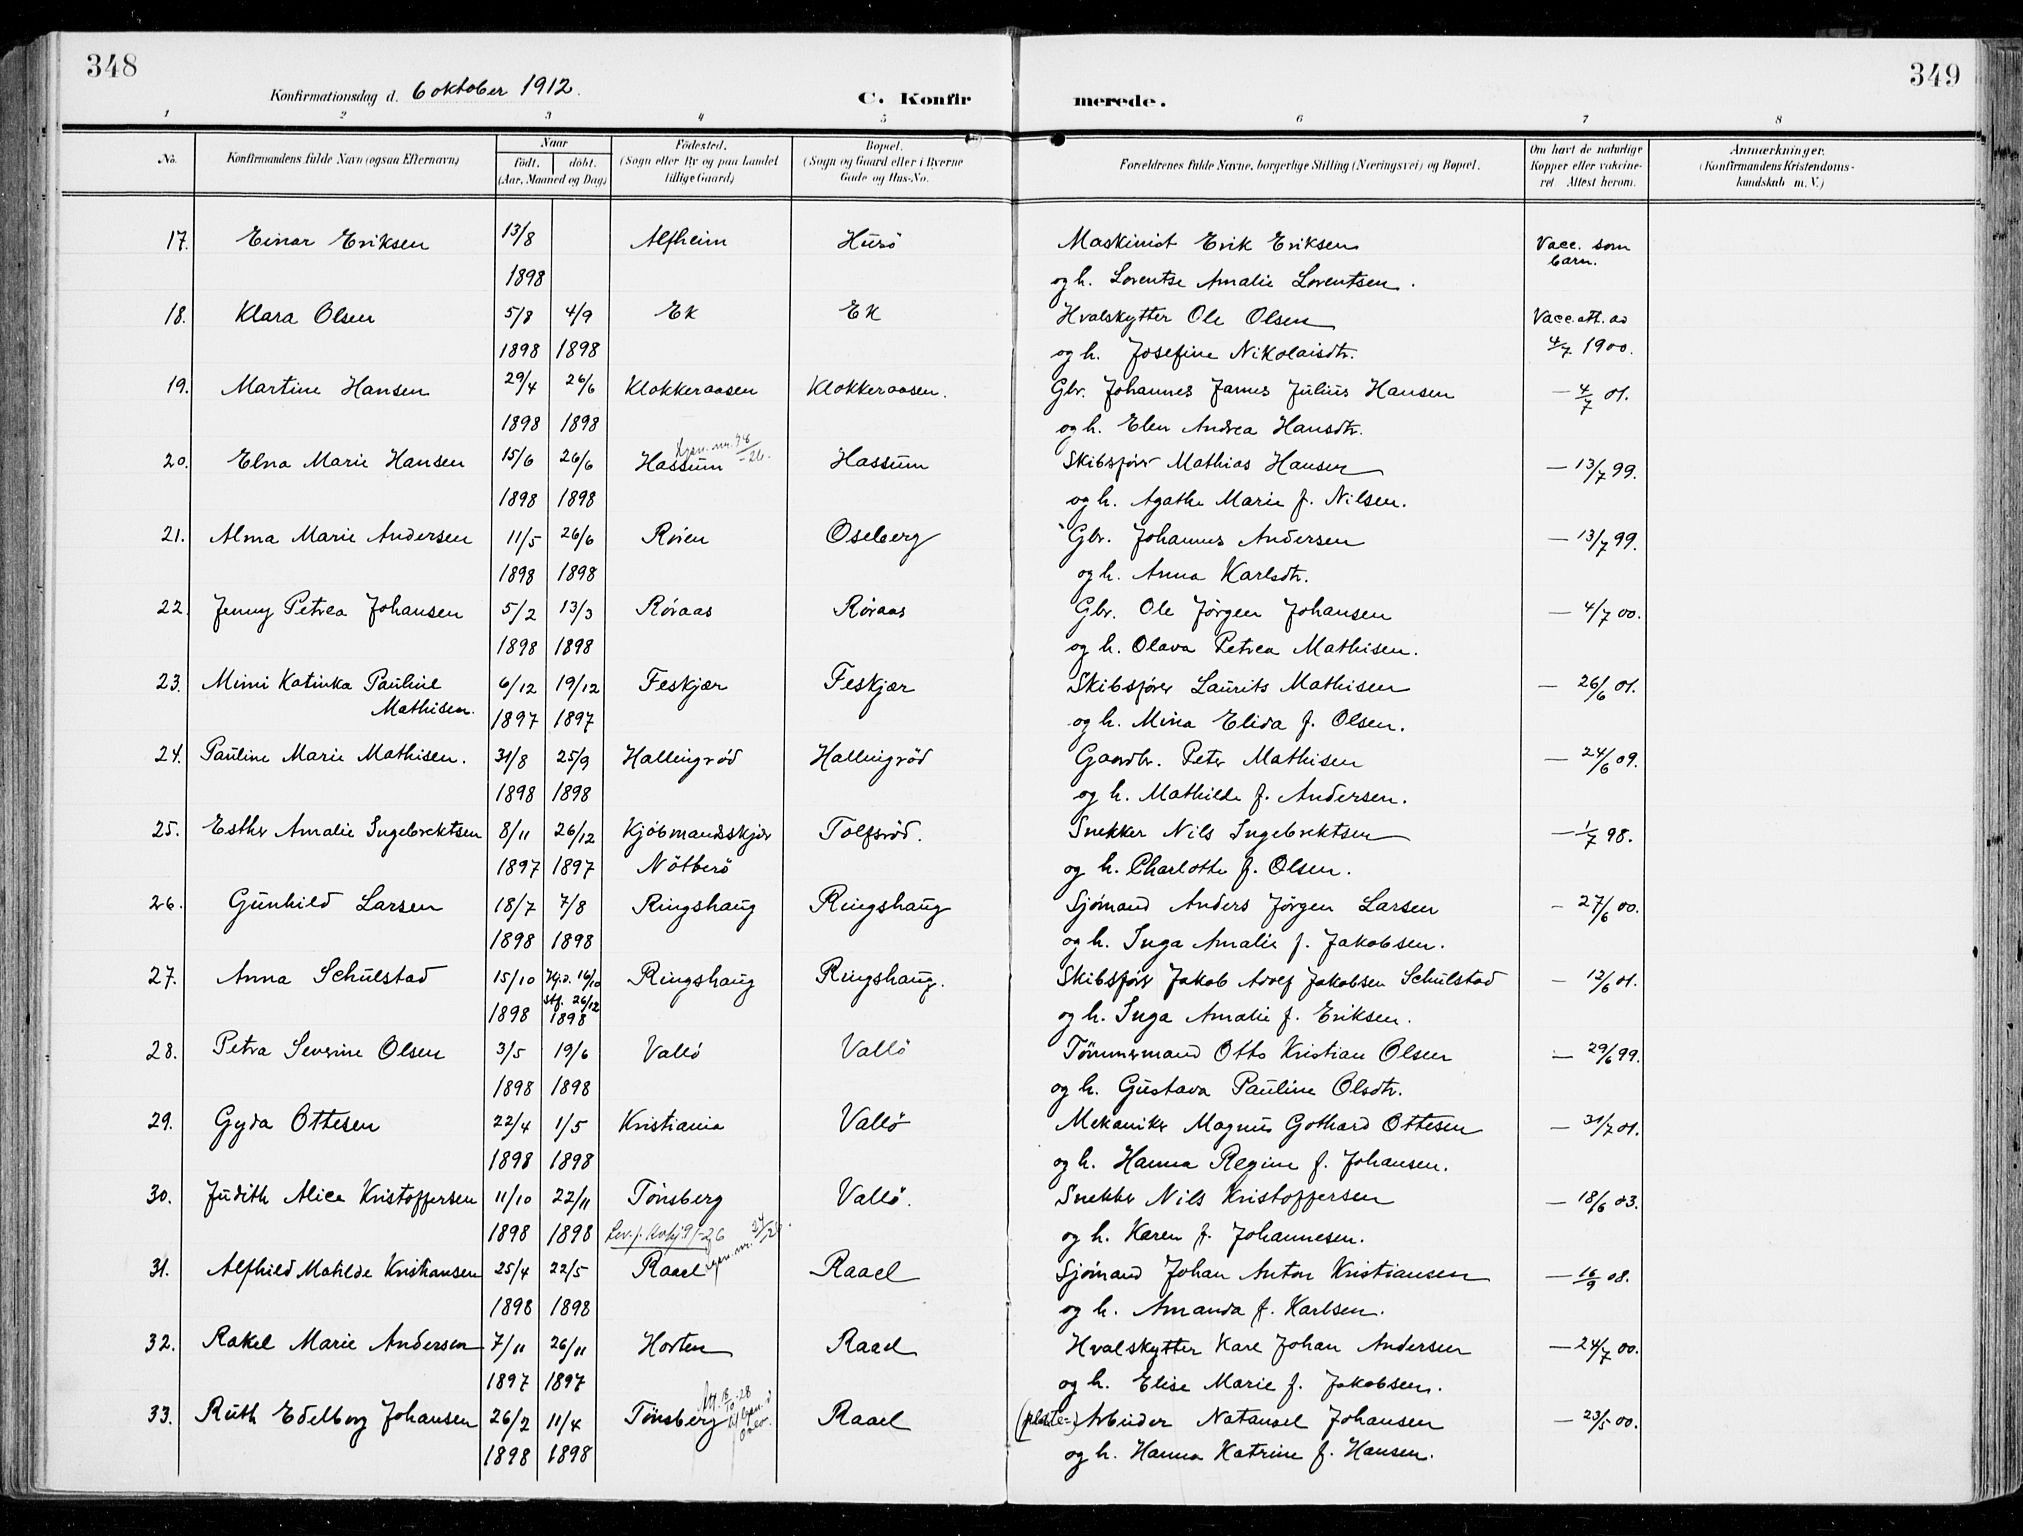 348
349
Konfirmationsdag d. 6 oktober 1912.
C. Konfirmerede.
1 2 3 4 5 6 7 8
No. | Konfirmandens fulde Navn (ogsaa Efternavn) | Naar født. døbt. (Aar, Maaned og Dag) | Fødested. (Sogn eller By og paa Landet tillige Gaard) | Bopæl. (Sogn og Gaard eller i Byerne Gade og Hus-No. | Forældrenes fulde Navne, borgerlige Stilling (Næringsvei) og Bopæl. | Om havt de naturlige Kopper eller vakcineret. Attest herom. | Anmærkninger. (Konfirmandens Kristendomskundskab m. V.)
17. Einar Eriksen 13/8 Alfheim Husö Maskinist Erik Eriksen Vacc. som barn.
1898 og h. Lorentse Amalie Lorentsen.
18. Klara Olsen 5/8 4/9 Ek Ek Hvalskytter Ole Olsen Vacc. att. av
1898 1898 og h. Josefine Nikolaisdtr. 4/7 1900.
19. Martine Hansen 29/4 26/6 Klokkeraasen Klokkeraasen. Gbr. Johannes James Julius Hansen — 4/7 01.
1898 1898 og h. Elen Andrea Hansdtr.
20. Elna Marie Hansen 15/6 26/6 Hassum Hassum Skibsfører Mathias Hansen — 13/7 99.
1898 1898 og h. Agathe Marie f. Nilsen.
21. Alma Marie Andersen 11/5 26/6 Röien Oseberg Gbr. Johannes Andersen — 13/7 99.
1898 1898 og h. Anna Karlsdtr.
22. Jenny Petrea Johansen 5/2 13/3 Röraas Röraas Gbr. Ole Jörgen Johansen — 4/7 00.
1898 1898 og h. Olava Petrea Mathisen.
23. Mimi Katinka Pauline 6/12 19/12 Feskjær Feskjær Skibsfører Laurits Mathisen — 26/6 01.
Mathisen. 1897 1897 og h. Mina Elida f. Olsen.
24. Pauline Marie Mathisen. 31/8 25/9 Hallingröd Hallingröd Gaardbr. Peter Mathisen — 24/6 09.
1898 1898 og h. Mathilde f. Andersen.
25. Esther Amalie Ingebrektsen 8/11 26/12 Kjöbmandsskjær Tolfsröd. Snekker Nils Ingebrektsen — 1/7 98.
1897 1897 Nötterö og h. Charlotte f. Olsen.
26. Gunhild Larsen 18/7 7/8 Ringshaug Ringshaug Sjömand Anders Jörgen Larsen — 27/6 00.
1898 1898 og h. Inga Amalie f. Jakobsen.
27. Anna Schulstad 15/10 Hjd. 16/10 Ringshaug Ringshaug. Skibsfører Jakob Adolf Jakobsen Schulstad — 12/6 01.
1898 stf. 26/12 1898 og h. Inga Amalie f. Eriksen.
28. Petra Severine Olsen 3/5 19/6 Vallö Vallö Tömmermand Otto Kristian Olsen — 29/6 99.
1898 1898 og h. Gustava Pauline Olsdtr.
29. Gyda Ottesen 22/4 1/5 Kristiania Vallö Mekaniker Magnus Gothard Ottesen — 31/7 01.
1898 1898 og h. Hanna Regine f. Johansen.
30. Judith Alice Kristoffersen 11/10 22/11 Tönsberg Vallö. Snekker Nils Kristoffersen — 18/6 03.
1898 1898 og h. Karen f. Johannesen.
31. Alfhild Matilde Kristiansen 25/4 22/5 Raael Raael Sjömand Johan Anton Kristiansen — 16/9 08.
1898 1898 og h. Amanda f. Karlsen.
32. Rakel Marie Andersen 7/11 26/11 Horten Raael Hvalskytter Karl Johan Andersen — 24/7 00.
1897 1897 og h. Elise Marie f. Jakobsen.
33. Ruth Edelborg Johansen 26/2 11/4 Tönsberg Raael Arbeider Natanael Johansen — 23/5 00.
1898 1898 og h. Hanna Katrine f. Hansen.